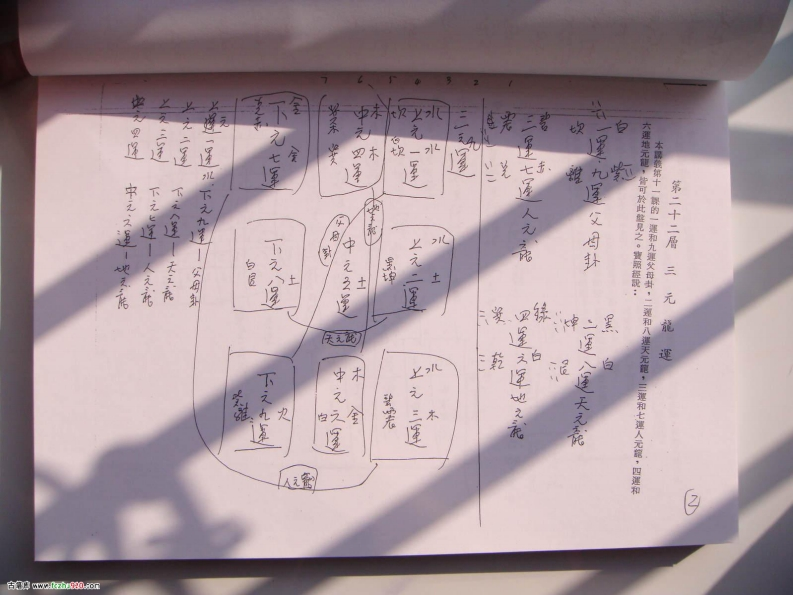 第二十二層 三元龍運
本講義第十一課的一運和九運父母卦，二運和八運天元龍，三運和七運人元龍，四運和
六運地元龍，皆可於此盤見之。寶照經說：
白 紫
一運九運父母卦
坎 離
碧 赤
三運七運人元龍
震
黑 白
二運八運天元龍
坤 艮
綠 白
四運六運地元龍
巽 乾
三元九運
水 水
上元一運
白坎
水 土
上元二運
黑坤
水 木
上元三運
碧震
木 木
中元四運
綠巽
中元五運
土
木 金
中元六運
白
金 金
下元七運
土
下元八運
白艮
火
下元九運
紫離
地元龍
父母卦
天元龍
人元龍
上元一運 水 下元九運—父母卦
上元二運 下元八運—天元龍
上元三運 下元七運—人元龍
中元四運 中元六運—地元龍
7 6 5 4 3 2 1
2
古籍库 www.fczha910.com